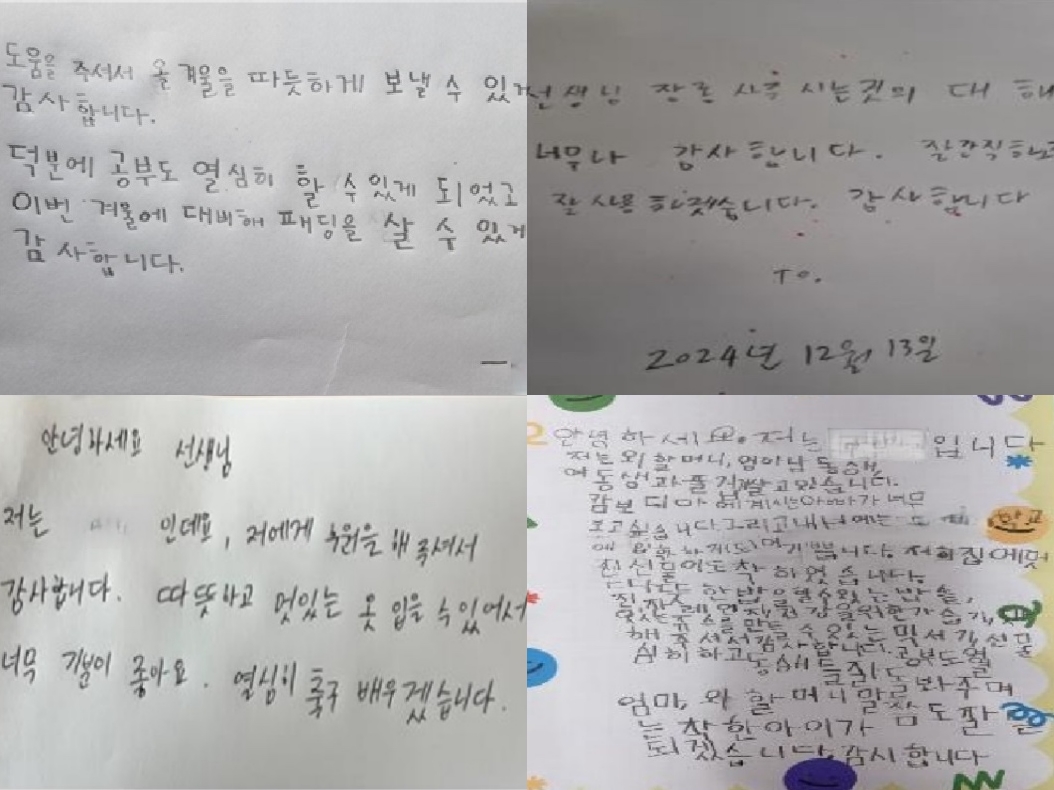 도움을 주셔서 올 겨울을 따듯하게 보낼 수 있
감사합니다.
덕분에 공부도 열심히 할 수 있게 되었고
이번 겨울에 대비해 패딩을 살 수 있
감사합니다.
선생님 장
너무나 감사합니다.
잘 사용 하겠습니다. 감사합니다
TO.
2024년 12월 13일
안녕하세요 선생님
저는 인데요, 저에게 후원을 해 주셔서
감사합니다. 따뜻하고 멋있는 옷 입을 수 있어서
너무 기분이 좋아요. 열심히 축구 배우겠습니다.
안녕하세요. 저는 입니다
저는 외할머니, 엄마, 동생,
여동생과
감보디아에 계시는 아빠가 너무
보고싶습니다 그리고 내년에는 학교
기쁩니다. 저희집에 멋
진 선물이 도착 하였습니다.
따뜻한 밥을 할 수 있는 밥솥,
가습기,
주스를 만들 수 있는 믹서기, 선물
해 주셔서 감사합니다. 공부도 열
심히 하고 동생들 잘 돌봐주며
엄마, 외할머니 말씀도 잘 듣
는 착한아이가
되겠습니다. 감사합니다